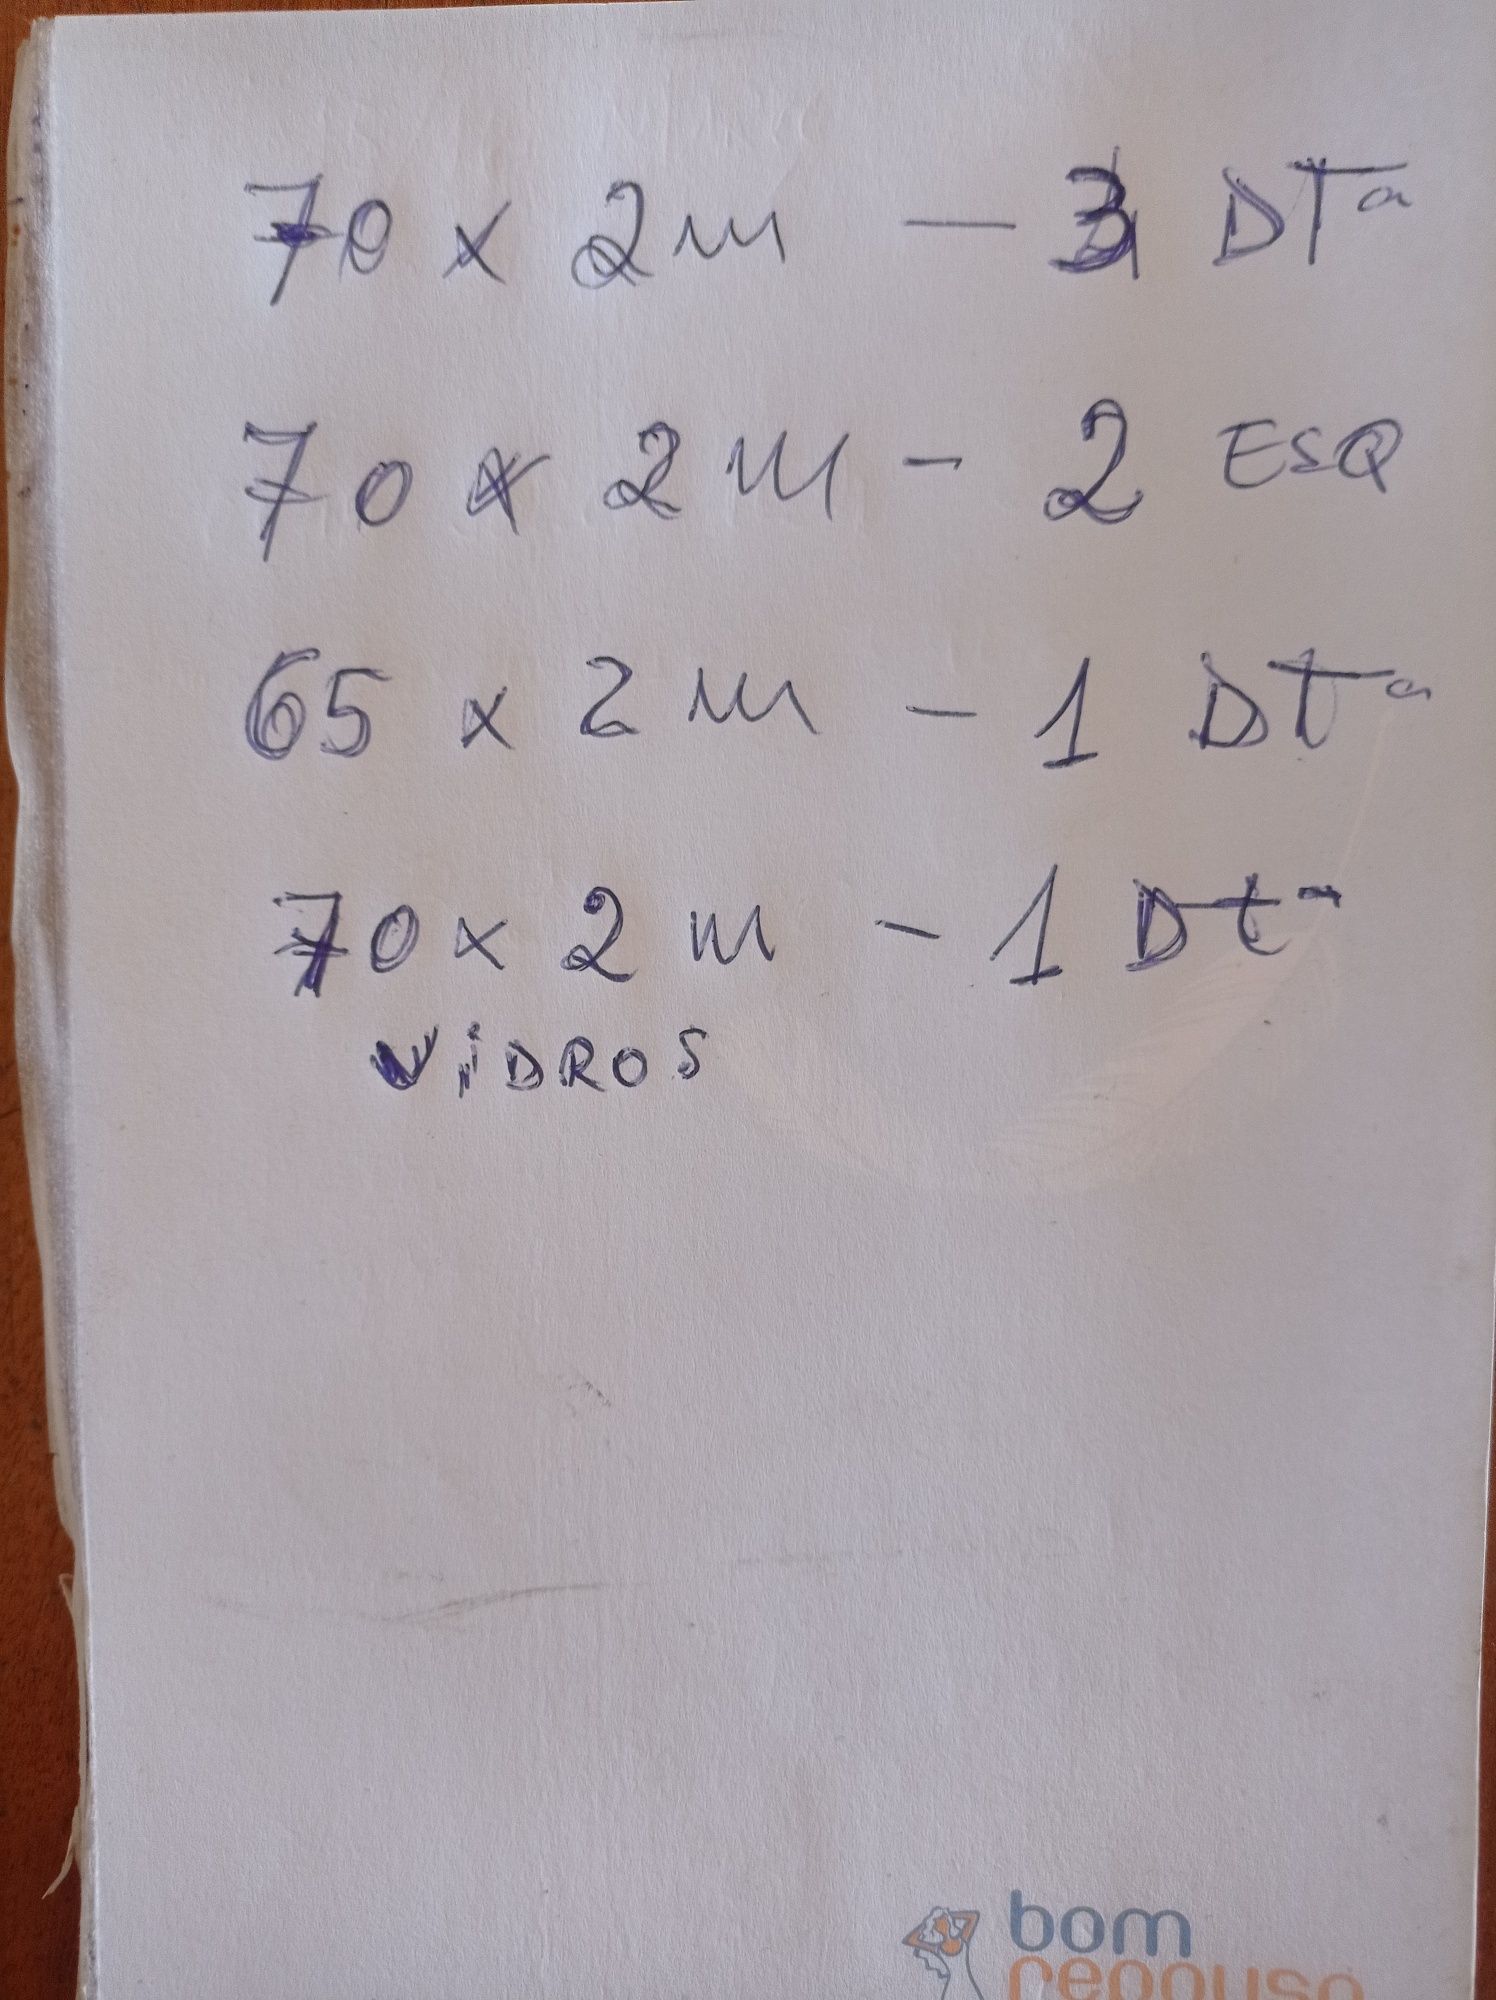 70 x 2m — 3 DTª
70 x 2m - 2 ESQ
65 x 2m - 1 DTª
70 x 2m - 1 Dtª
ViDROS
bom
repouso